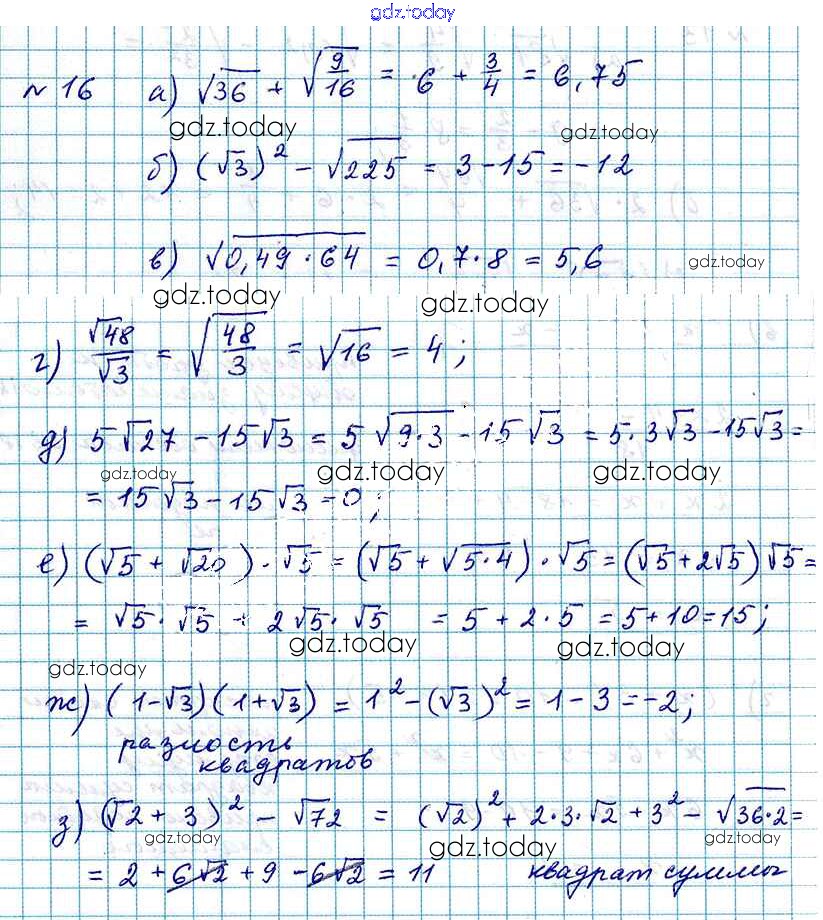 gdz.today
№ 16 а) √36 + √(9/16) = 6 + 3/4 = 6,75
gdz.today gdz.today
б) (√3)² − √225 = 3 − 15 = −12
в) √(0,49 · 64) = 0,7 · 8 = 5,6 gdz.today
gdz.today gdz.today
г) √48/√3 = √(48/3) = √16 = 4;
д) 5√27 − 15√3 = 5√(9·3) − 15√3 = 5·3√3 − 15√3 =
gdz.today gdz.today gdz.today
= 15√3 − 15√3 = 0;
е) (√5 + √20) · √5 = (√5 + √(5·4)) · √5 = (√5 + 2√5)√5 =
= √5 · √5 + 2√5 · √5 = 5 + 2·5 = 5 + 10 = 15;
gdz.today gdz.today
gdz.today
ж) (1 − √3)(1 + √3) = 1² − (√3)² = 1 − 3 = −2;
разность
квадратов
з) (√2 + 3)² − √72 = (√2)² + 2·3·√2 + 3² − √(36·2) =
gdz.today gdz.today gdz.today
= 2 + 6√2 + 9 − 6√2 = 11 квадрат суммы